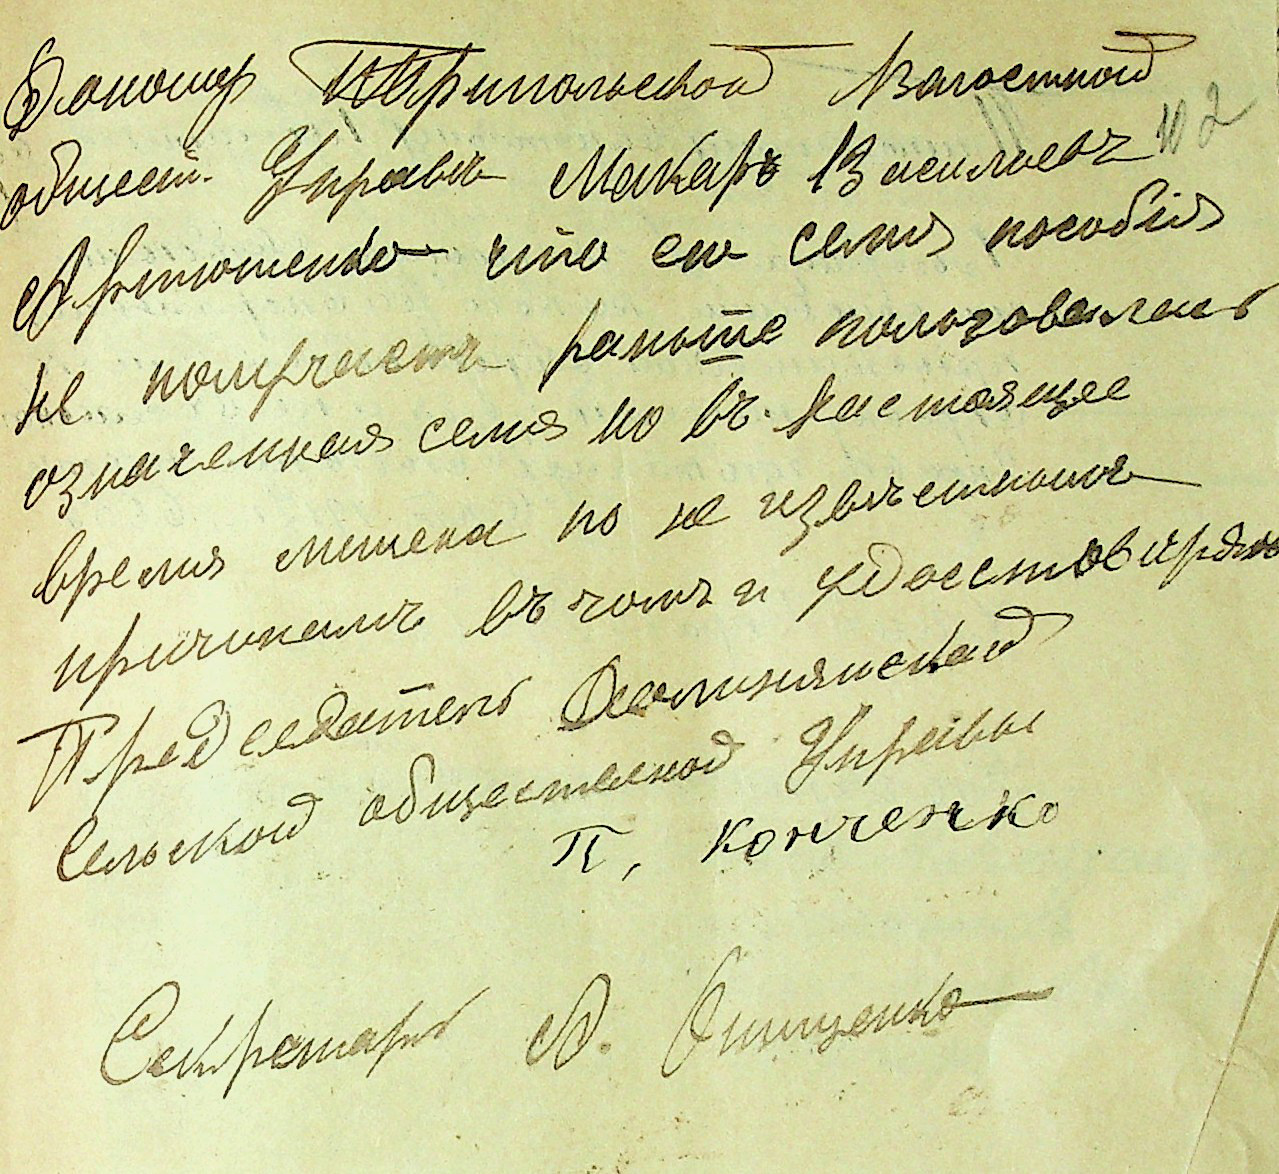 Доношу Трипольской Волостной
общест. Управѣ Макаръ Васильевъ
Артюшенко что его семя пособія
не получаетъ раньше пользовалась
означенная семя но въ настоящее
время лишена по не извѣстнымъ
причинамъ въ чомъ и удостовиряю
Председатель
Сельской общественной Управы
П, Конченко
Секретарь А. Онищенко
102